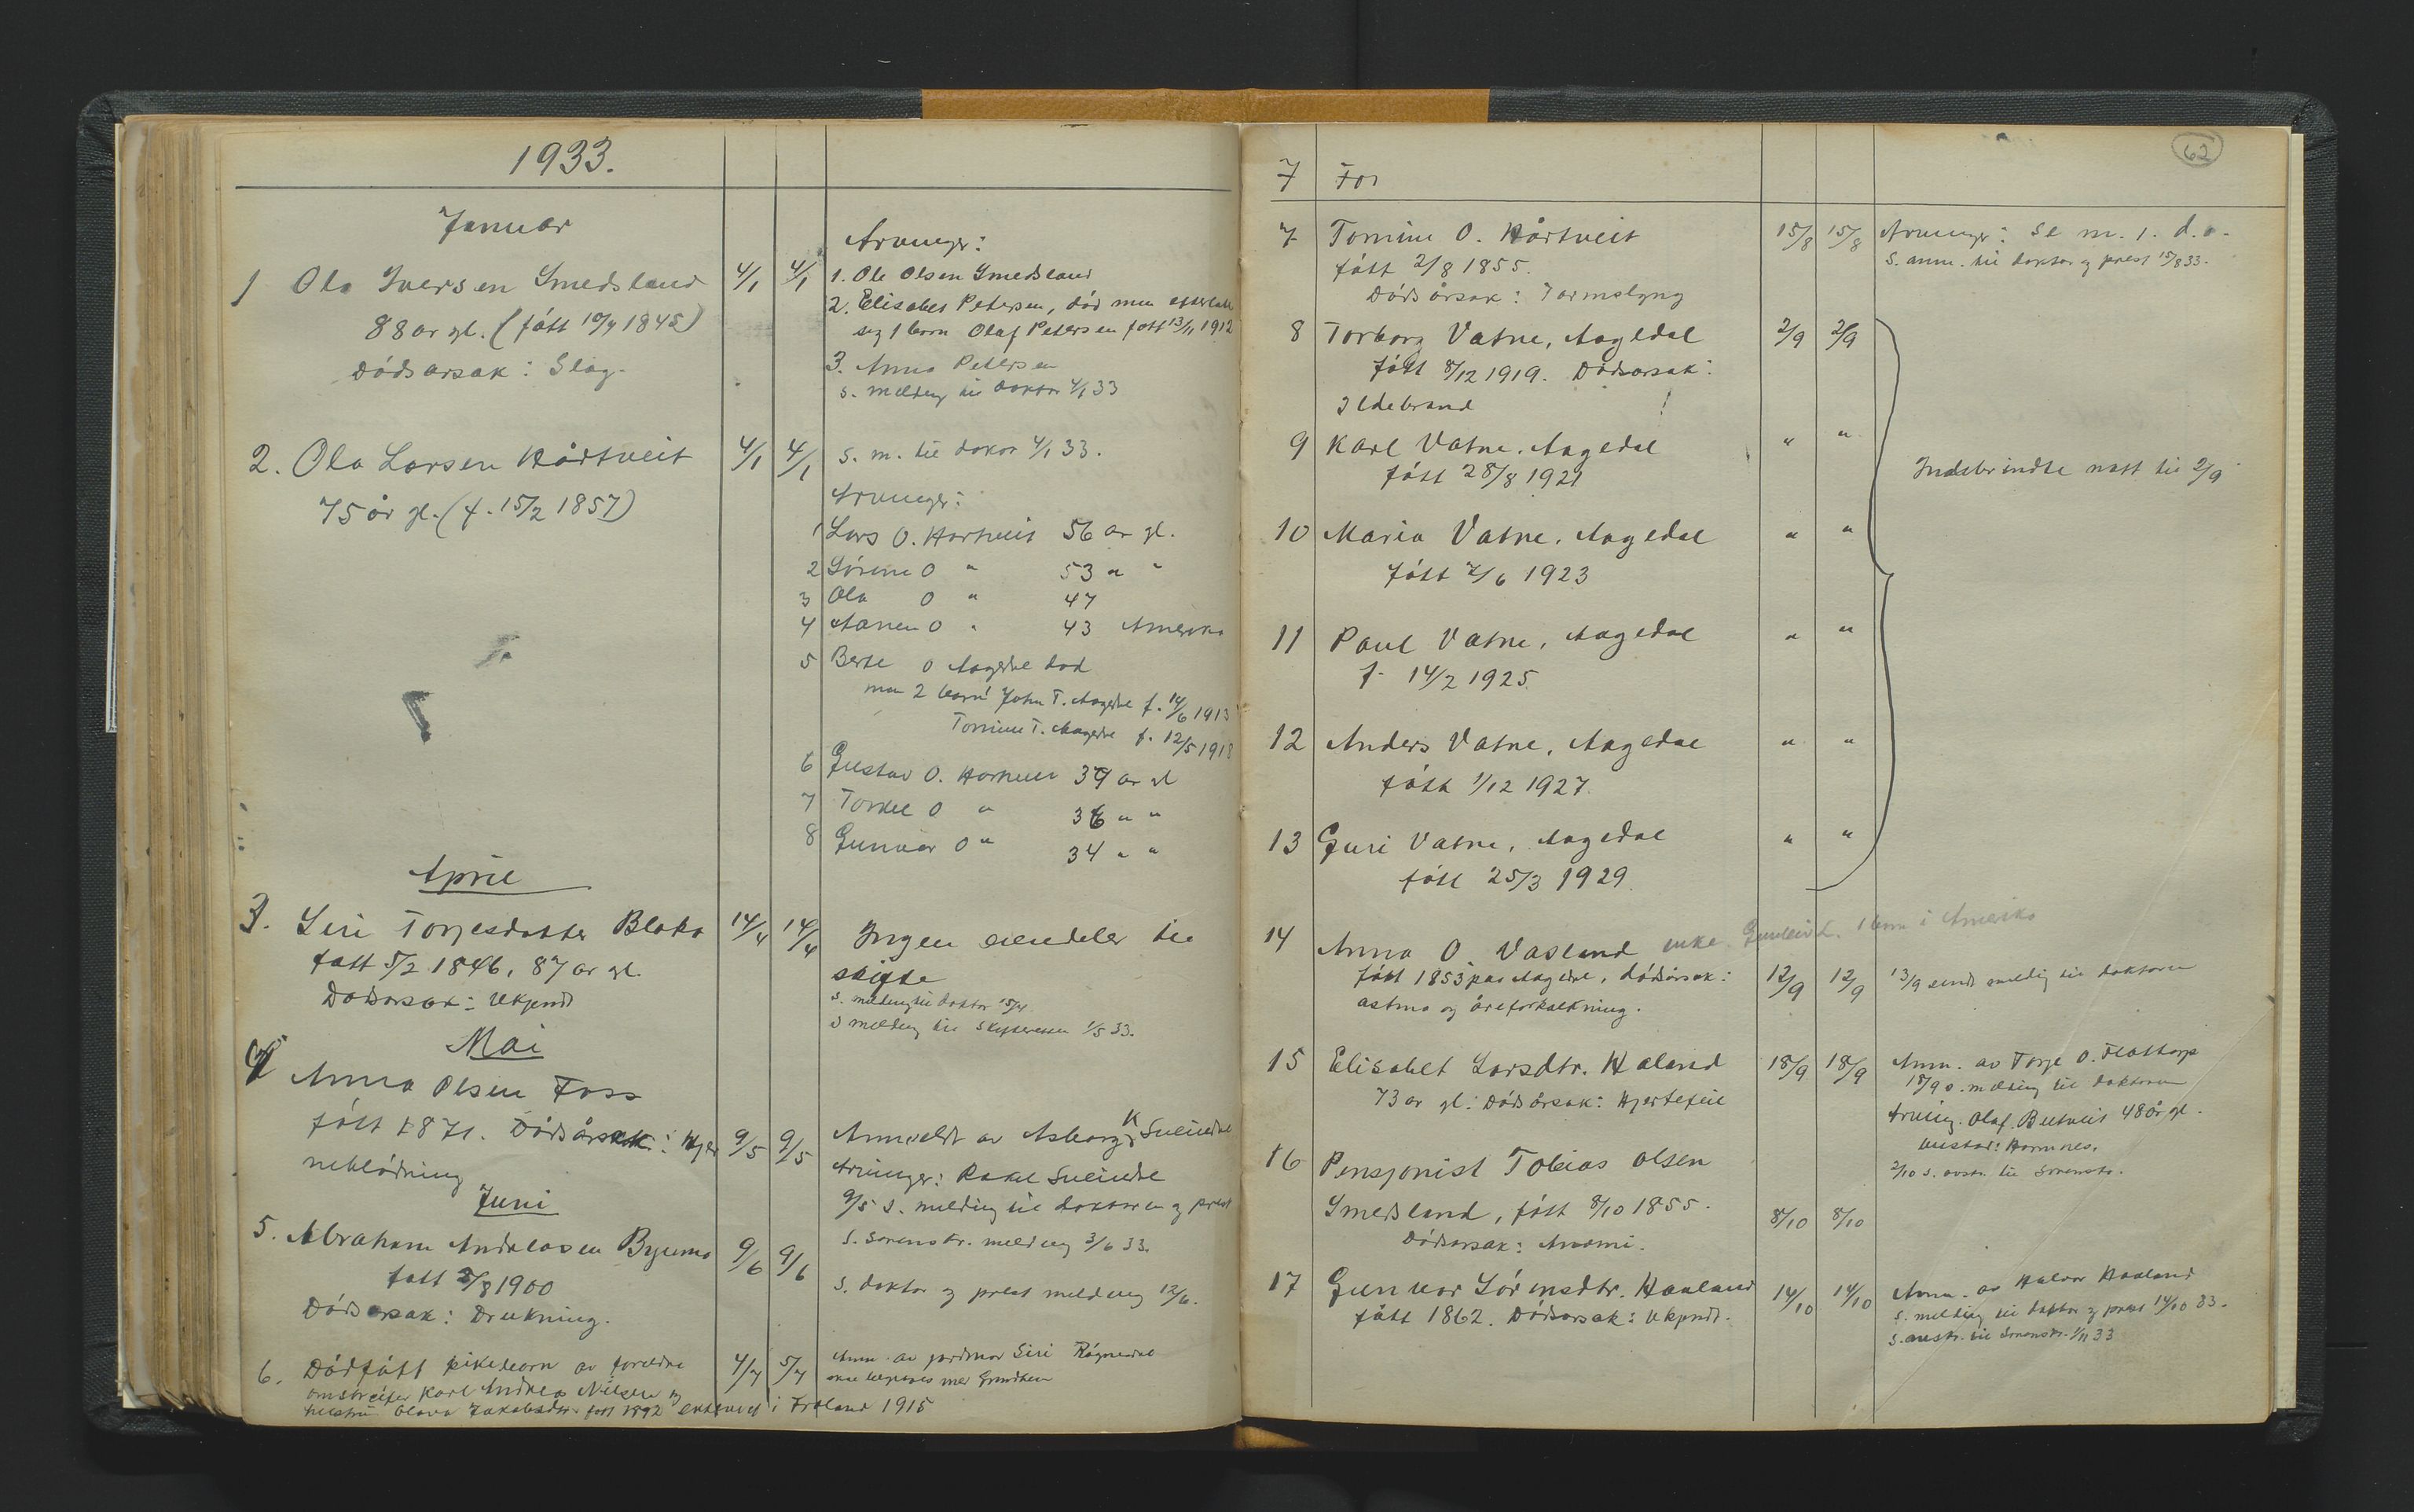 1933.
Januar
1 Ola Iversen Smedsland 4/1 4/1
88 år gl. (født 10/4 1845)
Dødsårsak: Slag.
Arvinger:
1. Ole Olsen Smedsland
2. Elisabet Petersen, död men efterlatt
seg 1 barn Olaf Petersen født 13/11 1912
3. Anna Petersen
s. melding til doktor 4/1 33
2. Ola Larsen Hårtveit 4/1 4/1
75 år gl. (f. 15/2 1857)
s. m. til doktor 4/1 33.
Arvinger:
1 Lars O. Hartveit 56 år gl.
2 Sørine O " 53 " "
3 Ola O " 47
4 Aanen O " 43 Amerika
5 Berte O Aagedal død
men 2 barn: John T. Aagedal f. 14/6 1913
Tomine T. Aagedal f. 12/5 1918
6 Gustav O. Hartveit 39 år gl
7 Torkel O " 36 " "
8 Gunvor O " 34 " "
April
3. Siri Torjesdatter Blaka 14/4 14/4
født 5/2 1846, 87 år gl.
Dødsårsak: Ukjendt
Ingen eiendeler til
skifte
s. melding til doktor 15/4
s melding til skifteretten 1/5 33.
Mai
4 Anna Olsen Foss
født 1871. Dødsårsak: Hjer 9/5 9/5
neblödning
Anmeldt av Asborg K Sveindal
Arvinger: Rakel Sveindal
9/5 s. melding til doktoren og prest
s. sorenskr. melding 3/6 33.
Juni
5. Abraham Andreasen Byremo 9/6 9/6
født 2/8 1900
Dødsårsak: Drukning.
s. doktor og prest melding 12/6.
6. Dødfødt pikebarn av foreldre 4/7 5/7
omstreifer Karl Andreas Nilsen og
hustru Olava Jakobsdtr. født 1892 ektevied i Froland 1915
Anm. av jordmor Siri Rågnedal
62
7 For
7 Tomine O. Hårtveit 15/8 15/8
født 2/8 1855.
Dødsårsak: Tarmslyng
Arvinger: se nr. 1. d.a.
s. anm. til doktor og prest 15/8 33.
8 Torborg Vatne, Aagedal 2/9 2/9
født 8/12 1919. Dødsårsak:
Ildebrand
9 Karl Vatne, Aagedal " "
født 28/8 1921
Indebrindte natt til 2/9
10 Maria Vatne, Aagedal " "
født 2/6 1923
11 Paul Vatne, Aagedal " "
f. 14/2 1925.
12 Anders Vatne, Aagedal " "
født 1/12 1927.
13 Guri Vatne, Aagedal " "
født 25/3 1929.
14 Anna O. Vasland enke 1 barn i Amerika
født 1853 på Aagedal, dødsårsak: 12/9 12/9
astma og åreforkalkning.
13/9 sendt melding til doktoren
15 Elisabet Larsdtr. Haland 18/9 18/9
73 år gl. Dødsårsak: Hjertefeil
Anm. av Torje O. Flottorp
18/9 s. melding til doktoren
Arving. Olaf Butveit 48 år gl.
bustad: Hornnes.
2/10 s. avskr. til Sorenskr.
16 Pensjonist Tobias Olsen
Smedsland, født 8/10 1855. 8/10 8/10
Dødsårsak: Anemi.
17 Gunvor Sörensdtr. Haaland 14/10 14/10
født 1862. Dødsårsak: Ukjendt.
Anm. av Halvor Haaland
s. melding til doktor og prest 14/10 33.
s. avskr. til Sorenskr. 1/11 33